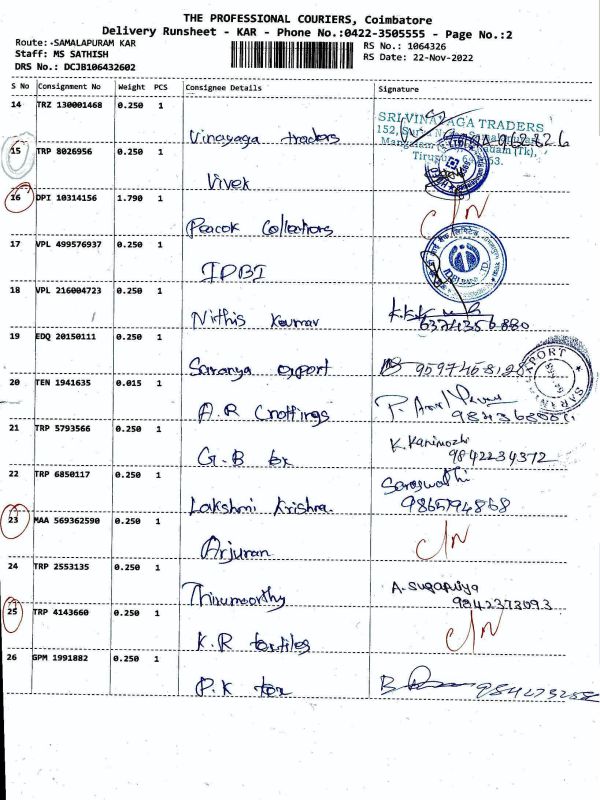 THE PROFESSIONAL COURIERS, Coimbatore
Delivery Runsheet - KAR - Phone No.:0422-3505555 - Page No.:2
Route:-SAMALAPURAM KAR
RS No.: 1064326
Staff: MS SATHISH
RS Date: 22-Nov-2022
DRS No.: DCJB106432602
S No Consignment No Weight PCS Consignee Details Signature
14 TRZ 130001468 0.250 1
SRI VINAYAGA TRADERS
Vinayaga traders
15 TRP 8026956 0.250 1
Vivek
16 DPI 10314156 1.790 1
C/N
Peacok Collections
17 VPL 499576937 0.250 1
IDBI
IDBI BANK LTD.
18 VPL 216004723 0.250 1
Nithis Kumar
6374356880
19 EDQ 20150111 0.250 1
Saranya export
9597458128
20 TEN 1941635 0.015 1
A.R Cnottings
21 TRP 5793566 0.250 1
K. Kanimozhi
G.B tex
9842234372
22 TRP 6850117 0.250 1
Saraswathi
Lakshmi Krishna
9865794868
23 MAA 569362590 0.250 1
C/N
Arjunan
24 TRP 2553135 0.250 1
Thirumoorthy
A. Sugapriya
9842373093
25 TRP 4143660 0.250 1
C/N
K.R textiles
26 GPM 1991882 0.250 1
P.K tex